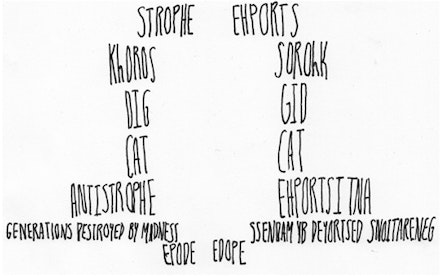 STROPHE EHPORTS
KhOROS SOROhK
DIG GID
CAT CAT
ANTISTROPHE EHPORTSITNA
GENERATIONS DESTROYED BY MADNESS SSENDAM YB DEYORTISED SNOITARENEG
EPODE EDOPE